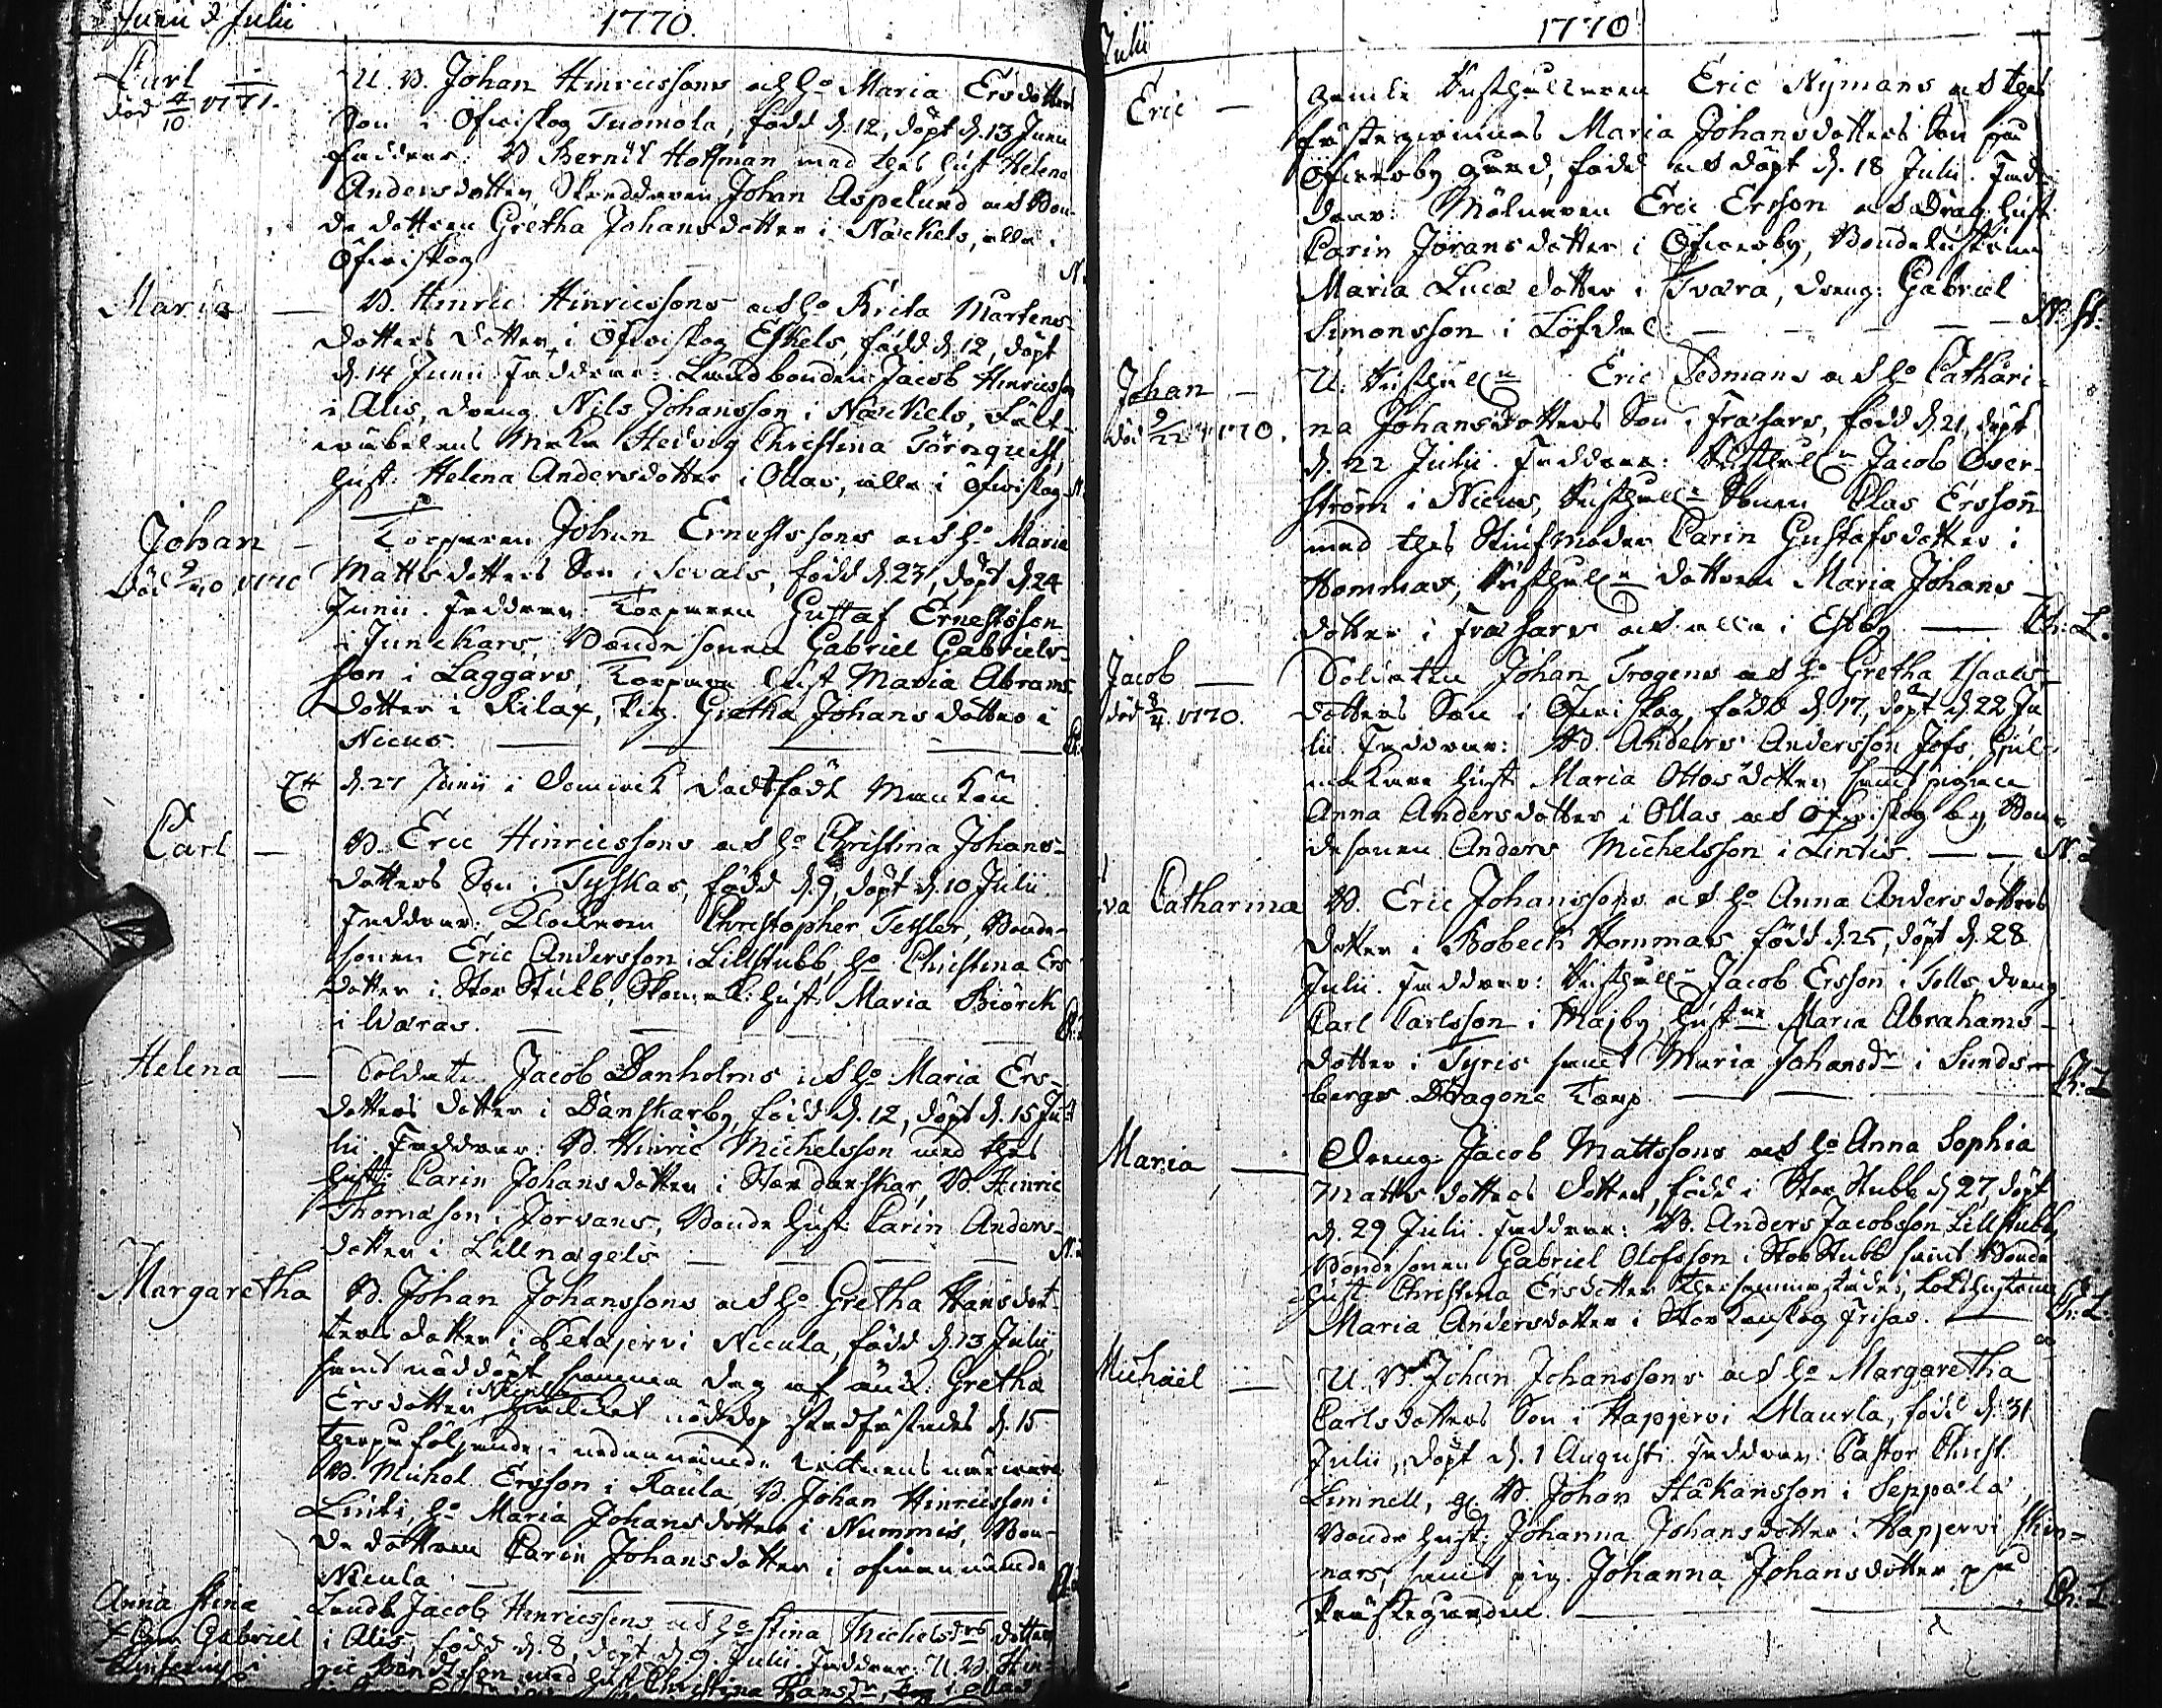 Junii & Julii 1770.
Carl
död 4/10 1771.
U. B. Johan Hinricssons och h:o Maria Ersdotters
Son i Öfwiskog Tuomola, född d. 12, döpt d. 13 Junii
Faddrar: B. Berndt Hoffman med thes hust. Helena
Andersdotter, Skreddaren Johan Aspelund och Bon-
de dottren Gretha Johansdotter i Näckels, alla i
Öfwiskog N.
Maria —
B. Hinric Hinricssons och h:o Brita Mårtens-
dotters dotter i Öfwiskog Eskels, född d. 12, döpt
d. 14 Junii. Faddrar: Landbonden Jacob Hinricsson
i Alis, dreng. Nils Johansson i Näckels, Fält-
wäbelens Maka Hedvig Christina Törnquist,
hust: Helena Andersdotter i Ollas, alla i Öfwiskog N.
Johan —
död 9/20 1770
Torparen Johan Ernestssons och h:o Maria
Mattsdotters Son i Scvals, född d. 23, döpt d. 24
Junii. Faddrar: Torparen Gustaf Ernestsson
i Junckars, Bondesonen Gabriel Gabriels-
son i Laggars, Torpare hust Maria Abrams
dotter i Rilax, Pig. Gretha Johansdotter i
Nicus. — — — —
d. 27 Junii i Domwik dödfödt Mankön
Carl —
B. Eric Hinricssons och h:o Christina Johans-
dotters Son i Tyskas, född d. 9, döpt d. 10 Julii.
Faddrar: Klockaren Christopher Tessler, Bonde-
sonen Eric Andersson i Lillstubb, h:o Christina Ers
dotter i Stor Stubb, Skomak: hust: Maria Biörck
i Waras. — — — —
Helena —
Soldaten Jacob Danholms och h:o Maria Ers-
dotters dotter i Danskarby, född d. 12, döpt d. 15 Ju-
lii. Faddrar: B. Hinric Michelsson med thes
hust: Carin Johansdotter i Stordanskar, B. Hinric
Thomasson i Jorvans, Bonde hust: Carin Anders-
dotter i Lillnägels — — — N.
Margaretha
B. Johan Johanssons och h:o Gretha Hansdot-
ters dotter i Petajervi Nicula, född d. 13 Julii,
samt nöddöpt samma dag af änk: Gretha
Ersdotter i Nicula hwilket nöddop stadfästades d. 15
therpåföljande i nedannämde wittnens närwaro
B. Michel Ersson i Raula, B. Johan Hinricsson i
Linti, h:o Maria Johansdotter i Nummis, Bon-
de dottren Carin Johansdotter i ofwannämde
Nicula — — —
Anna Stina
Landb. Jacob Hinricssons och h:o Stina Michelsdrs dotter
i Alis, född d. 8, döpt d. 9. Julii. Faddrar: U. B. Hin-
ric Bendtsson med hust Christina Hansdr, i Ollas
Julii 1770
Eric —
Gamle Rusthållaren Eric Nymans och thes
fästeqwinnas Maria Johansdotters Son på
Öfwerby gård, född och döpt d. 18 Julii. Fad-
drar: Mölnaren Eric Ersson och Dräg. hust:
Carin Jöransdotter i Öfwerby, Bondehustrun
Maria Lucædotter i Tvärä, dreng: Gabriel
Simonsson i Löfdal — — — — N. St.
Johan —
död 9/22 1770.
U: Rusthåln Eric Sedmans och h:o Cathari-
na Johansdotters Son i Träsars, född d. 21, döpt
d. 22 Julii. Faddrar: Rusthåln Jacob Över-
ström i Nicus, Rusthålle Sonen Clas Ersson
med thes Stiufmoder Carin Gustafsdotter i
Hommas, Rusthåln dottren Maria Johans-
dotter i Träsars och alla i Estby — Ch: L.
Jacob —
död 8/4 1770.
Soldaten Johan Trogens och h:o Gretha Isaacs-
dotters Son i Öfwiskog, född d. 17, döpt d. 22 Ju
lii. Faddrar: B. Anders Andersson Jofs, hjul-
makare hust: Maria Ottosdotter samt pigan
Anna Andersdotter i Ollas och Öfwiskog by, Bon-
desonen Anders Michelsson i Lintis. — — N.
va Catharina
B. Eric Johanssons och h:o Anna Andersdotters
dotter i Bobeck Hommas född d. 25, döpt d. 28
Julii. Faddrar: Rusthåln Jacob Ersson i Tolls, dreng
Carl Carlsson i Majby, hustrur Maria Abrahams-
dotter i Tyris samt Maria Johansdr i Sunds-
bergs Dragone Torp — — — Ch: L
Maria —
Dreng: Jacob Mattssons och h:o Anna Sophia
Mattsdotters dotter, född i Stor Stubb d. 27, döpt
d. 29 Julii. Faddrar: B. Anders Jacobsson Lillstubb,
Bondesonen Gabriel Olofsson i StorStubb samt Bonde
hust Christina Ersdotter thersammastädes,
Maria Andersdotter i Storkanskog Frisas. — Ch: L.
Michael —
U. B. Johan Johanssons och h:o Margaretha
Carlsdotters Son i Hapjervi Maurla, född d. 31
Julii, döpt d. 1 Augusti. Faddrar: Pastor Christ.
Limnell, gl. B. Johan Håkansson i Seppälä,
Bonde hust: Johanna Johansdotter i Hapjervi Skin-
nars, samt pig. Johanna Johansdotter på
Prästegården. — — Ch: L